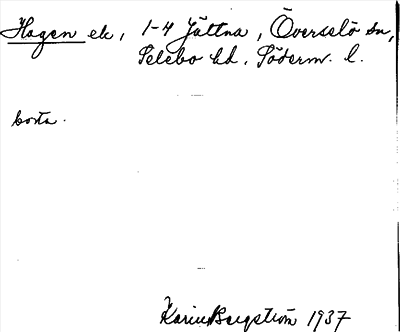 Hagen ek, 1-4 Jättna, Överselö sn,
Selebo hd. Söderm. l.
borta.
Karin Bergström 1937